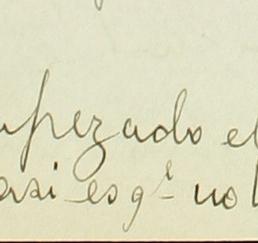 mpezado el
asi es qᵉ no